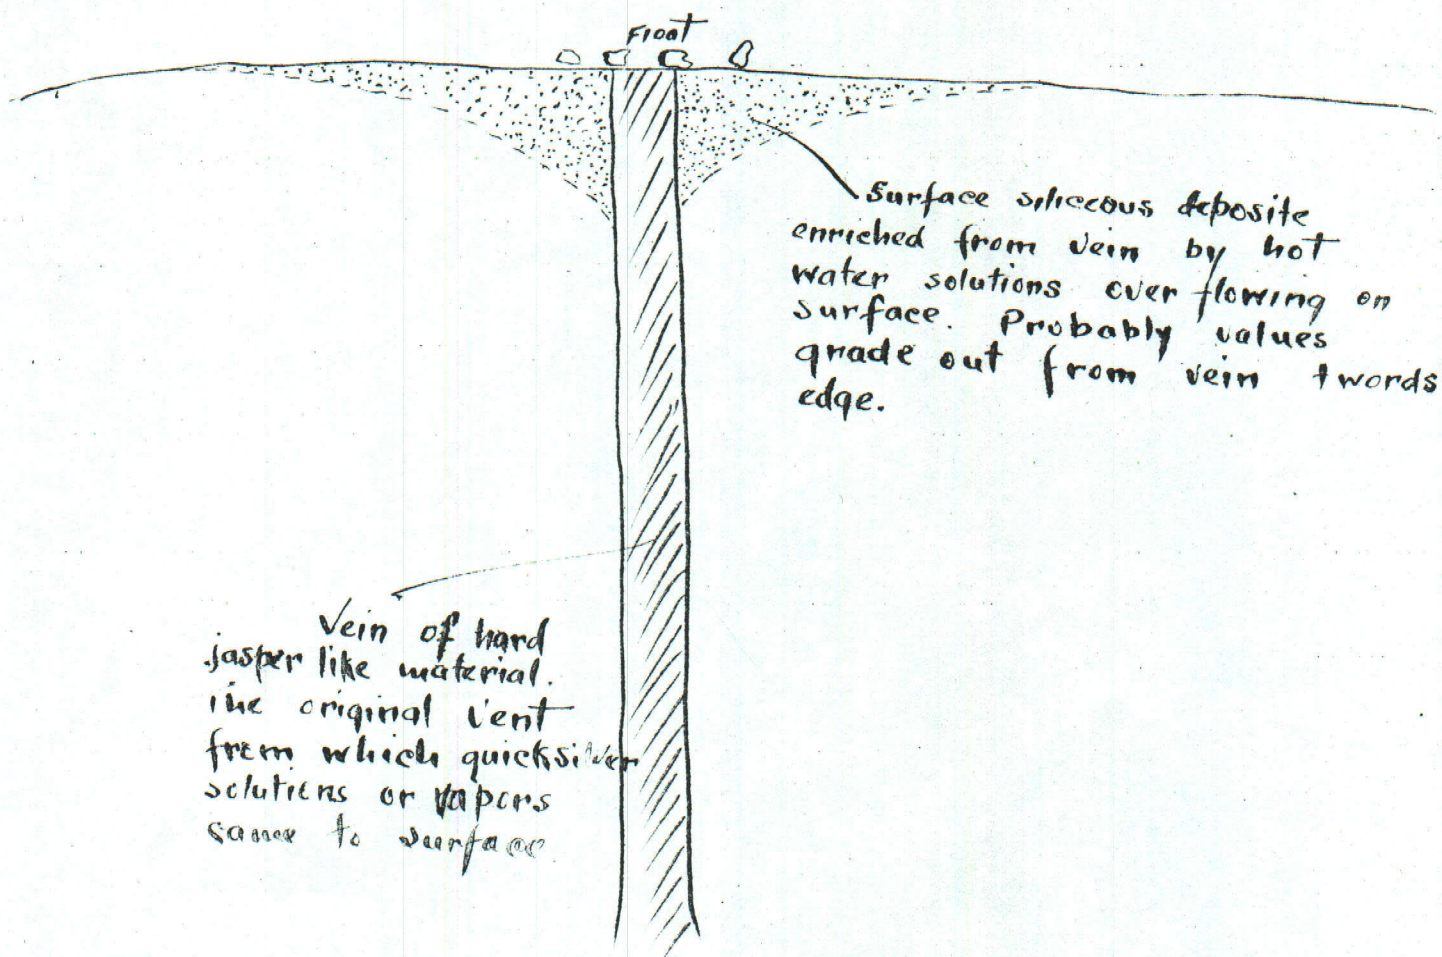 Float
Surface siliceous deposite
enriched from vein by hot
water solutions over flowing on
surface. Probably values
grade out from vein twords
edge.
Vein of hard
jasper like material.
The original vent
from which quicksilver
solutions or vapors
came to surface.